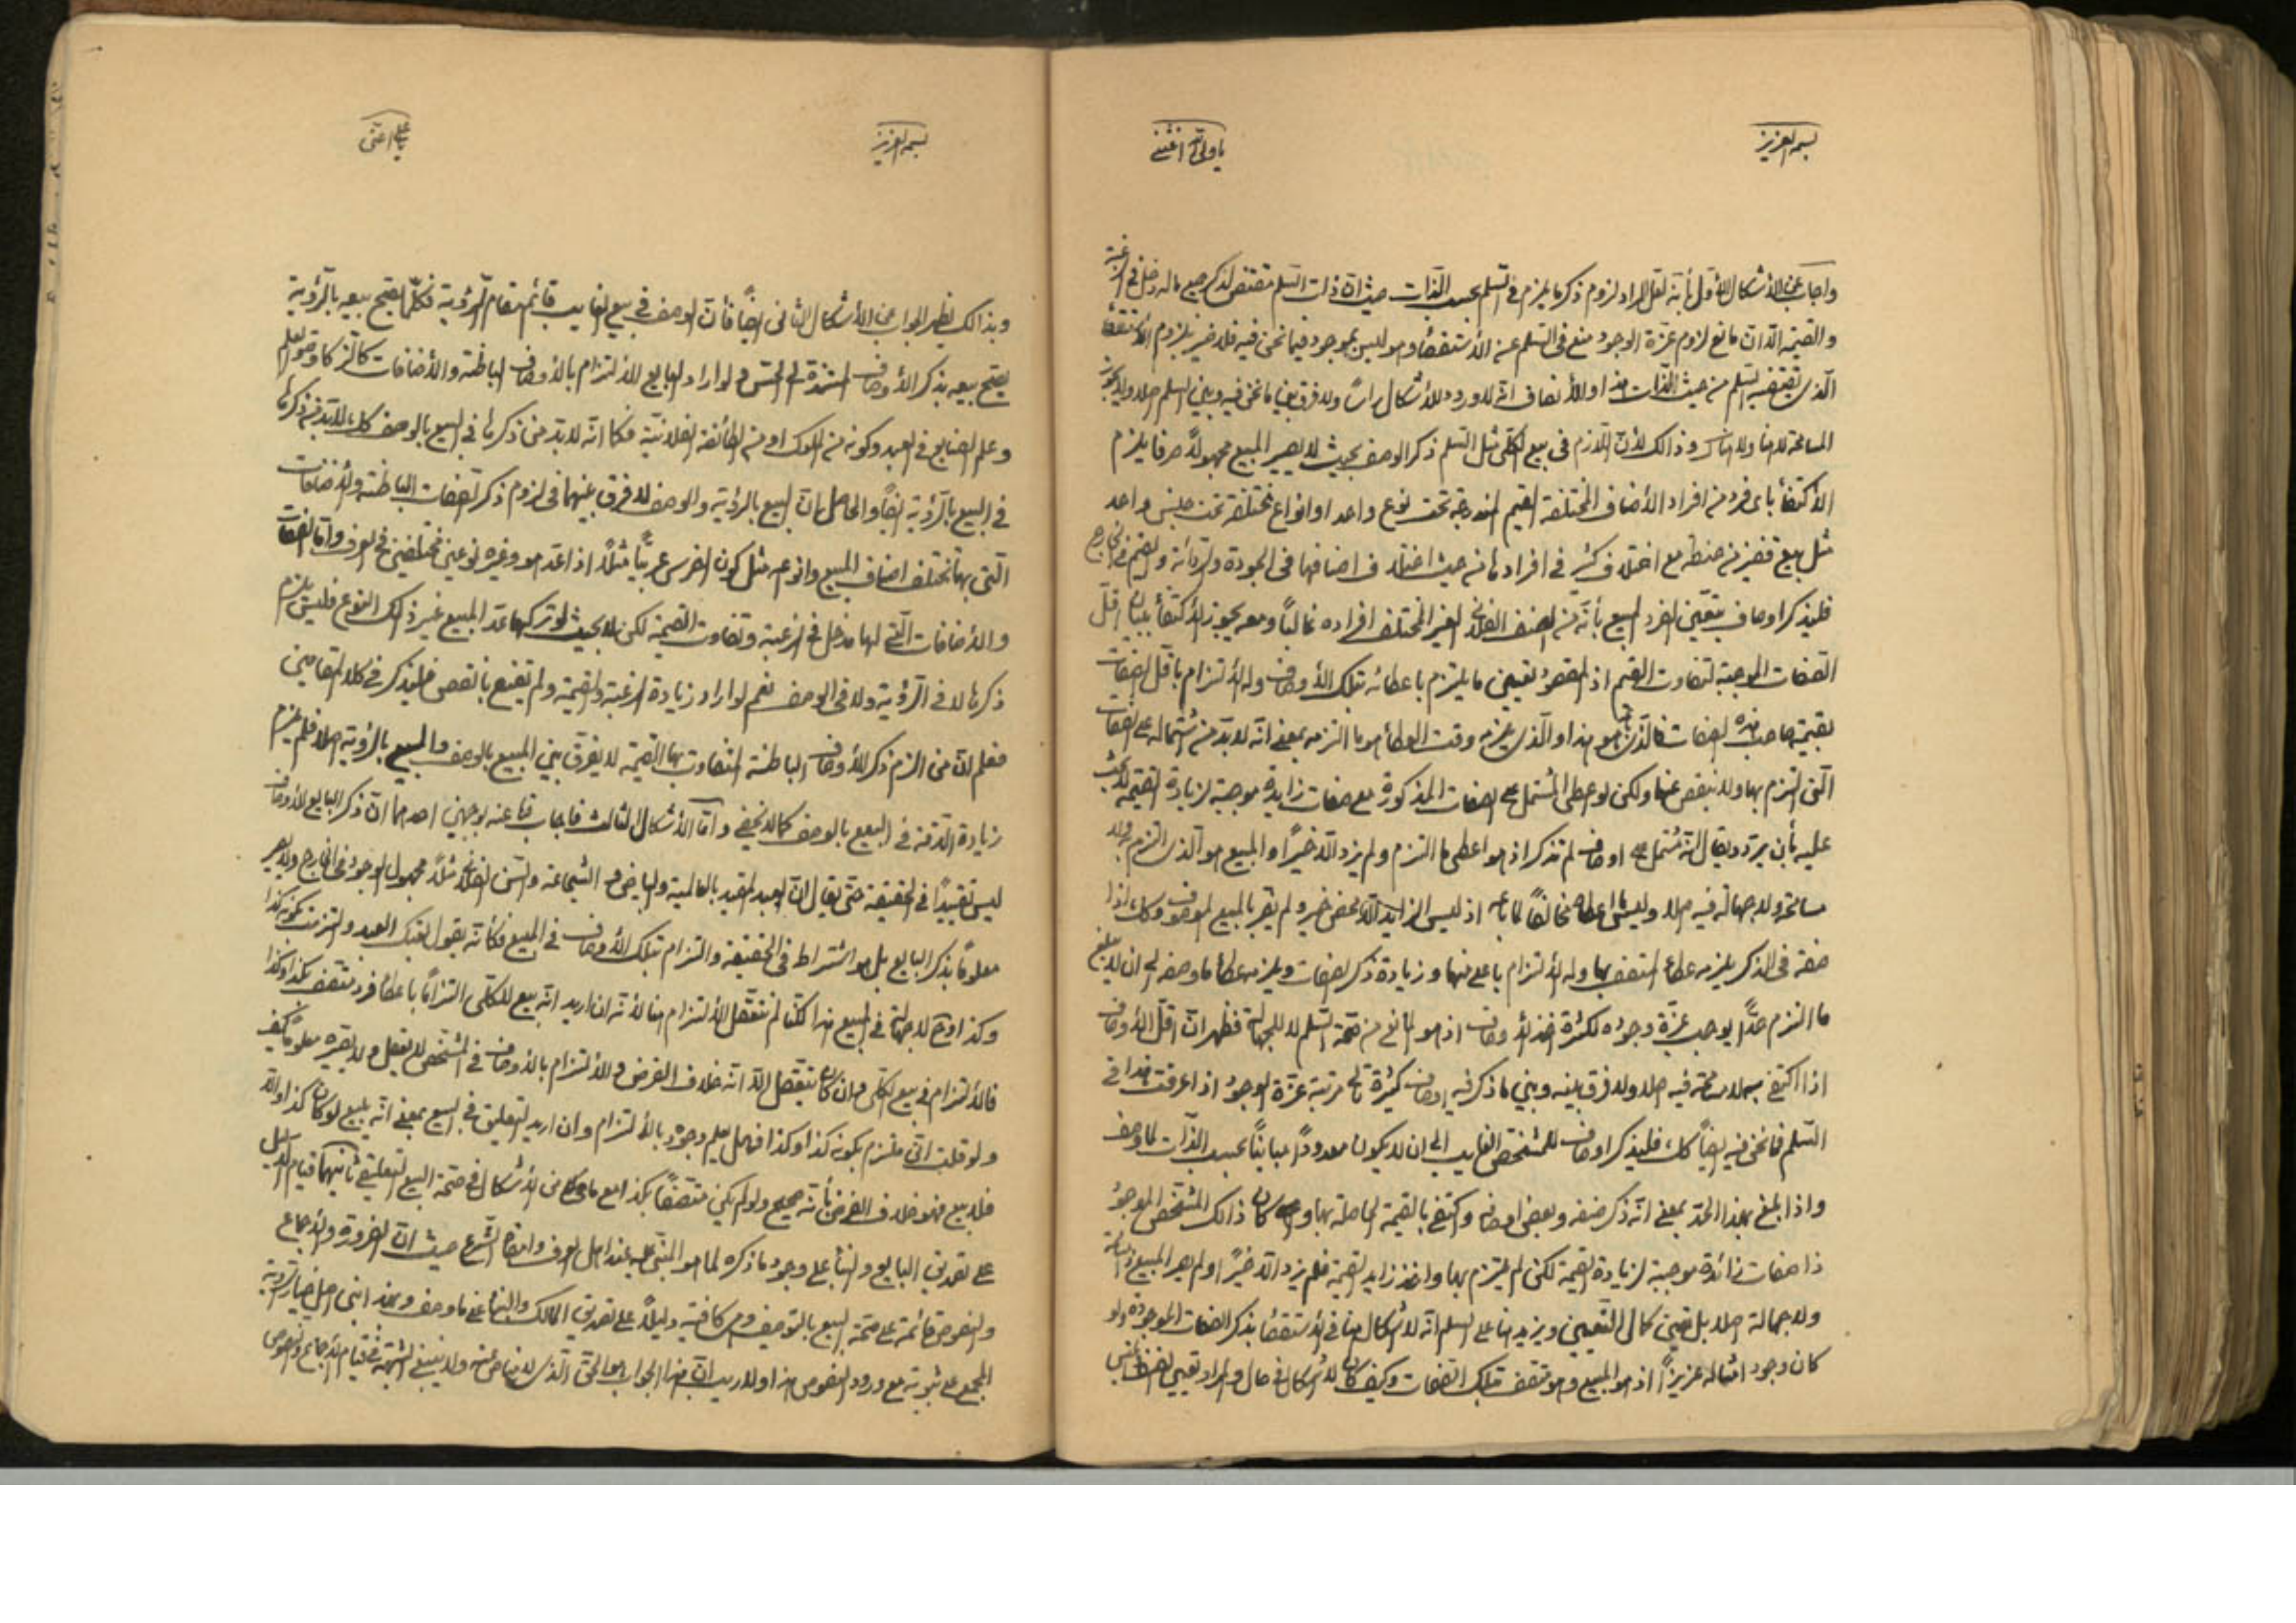 بسمه العزيز
يا ولي الله اغثني
واجاب عن الأشكال الأول بأنه لعل المراد لزوم ذكر ما يلزم في السلم بحسب الذات حيث ان ذات السلم مقتض لذكر جميع ما له دخل في الرغبة
والقيمة الا ان مانع لزوم عزة الوجود منع في السلم عن الأستقصاء وهو ليس بموجود فيما نحن فيه فلا ضير بلزوم الأستقصاء
الذي يقتضيه السلم من حيث الذات هذا والأنصاف انه لا ورود للأشكال رأساً ولا فرق بين ما نحن فيه وبين السلم اصلا ولا يجوز
المسامحة لا هنا ولا هناك وذالك لأن اللازم في بيع الكلي مثل السلم ذكر الوصف بحيث لا يصير المبيع مجهولاً صرفا يلزم
الأكتفاء باي فرد من افراد الأصناف المختلفة القيم المندرجة تحت نوع واحد او انواع مختلفة تحت جنس واحد
مثل بيع قفيز من حنطة مع اختلاف كثير في افرادها من حيث اختلاف اصنافها في الجودة والردائة والقيم في الخارج
فليذكر اوصاف يتعين الفرد المبيع بأنه من الصنف الفلاني الغير المختلف افراده غالباً ومعه يجوز الأكتفاء ببيان اقل
الصفات الموجبة لتفاوت القيم اذ المقصود تعيين ما يلتزم باعطائه بتلك الأوصاف وله الألتزام باقل الصفات
بقيمة صاحب هذه الصفات فالذي باع هو هذا والذي يلزمه وقت العطاء هو ما التزمه بمعنى انه لا بد من اشتماله على الصفات
التي التزم بها ولا ينقص عنها ولكن لو اعطى المشتمل على الصفات المذكورة مع صفات زايدة موجبة لزيادة القيمة لا يجب
عليه بأن يرد ويقال انه مشتمل على اوصاف لم تذكر اذ هو اعطى ما التزم ولم يزد الا خيراً والمبيع هو الذي التزم به ولا
مسامحة ولا جهالة فيه اصلا وليس ما اعطاه مخالفاً لما باعه اذ ليس الزايد الا محض خير ولم يضر بالمبيع الموصوف وكك اذا
صفة في الذكر يلزمه عطاء المتصف بها وله الألتزام باعلى منها وزيادة ذكر الصفات ويلزمه عطاء ما وصفه الى ان لا يبلغ
ما التزم حداً يوجب عزة وجوده لكثرة اخذ الأوصاف اذ هو المانع من صحة السلم لا للجهالة فظهر ان اقل الأوصاف
اذا اكتفي به لا مسامحة فيه اصلا ولا فرق بينه وبين ما ذكر فيه اوصاف كثيرة الى مرتبة عزة الوجود اذا عرفت هذا في
السلم فما نحن فيه ايضاً كك فليذكر اوصاف للمشخص الغايب الى ان لا يكون معدوداً مبايناً بحسب الذات لما وصف
واذا بلغ بهذا الحد بمعنى انه ذكر صنفه وبعض اوصافه واكتفي بالقيمة الحاصلة بها وان كان ذالك المشخص الموجود
ذا صفات زائدة موجبة لزيادة القيمة لكن لم يلتزم بها واخذ زايد القيمة فلم يزد الا خيراً ولم يصر المبيع
ولا جهالة اصلا بل تبين كمال التعيين ويزيد هنا على السلم انه لا اشكال هنا في الأستقصاء بذكر الصفات الموجودة ولو
كان وجود امثاله عزيزاً اذ هو المبيع وهو متصف بتلك الصفات وكيف كان لا اشكال في حال والمراد تعيين
بسمه العزيز
يا علي اغثني
وبذالك يظهر الجواب عن الأشكال الثاني ايضاً فأن الوصف في بيع الغايب قائم مقام الرؤية فكلما يصح بيعه بالرؤية
يصح بيعه بذكر الأوصاف المستندة الى الحس ولو اراد البايع للألتزام بالأوصاف الباطنة والأضافات كالتركاوية والعلم
وعلم الصنايع في العبد وكونه من الملوك او من الطائفة الفلانية فكما انه لا بد من ذكرها في البيع بالوصف كك لا بد من ذكرها
في البيع بالرؤية ايضاً والحاصل ان البيع بالرؤية والوصف لا فرق بينهما في لزوم ذكر الصفات الباطنة والأضافات
التي بها تختلف اصناف المبيع وانواعه مثل كون الفرس عربياً مثلاً اذا عد هو وغيره نوعين مختلفين في العرف واما الصفات
والأضافات التي لها مدخل في الرغبة وتفاوت القيمة لكن لا بحيث لو تركها عد المبيع غير ذالك النوع فليس يلزم
ذكرها لا في الرؤية ولا في الوصف نعم لو اراد زيادة الرغبة والقيمة ولم يقنع بانقص فليذكر في كلا المقامين
فعلم ان من الزم ذكر الأوصاف الباطنة المتفاوت بها القيمة لا يفرق بين المبيع بالوصف والمبيع بالرؤية اصلا فلم يلزم
زيادة الدقة في البيع بالوصف كما لا يخفى واما الأشكال الثالث فاجاب قا عنه بوجهين احدهما ان ذكر البايع الأوصاف
ليس تقييداً في الحقيقة حتى يقال ان العبد المقيد بالعالمية والبياض والشجاعة والسن الفلاني مثلاً مجهول الوجود في الخارج ولا يصير
معلوماً بذكر البايع بل هو اشتراط في الحقيقة والتزام بتلك الأوصاف في المبيع فكأنه يقول بعتك العبد والتزمت بكونه كذا
وكذا وح لا جهالة في المبيع هذا لكنا لم نتعقل الألتزام هنا لأنه ان اريد انه بيع للكلي التزاماً باعطاء فرد متصف بكذا وكذا
فالألتزام في بيع الكلي وان كان يتعقل الا انه خلاف الفرض والألتزام بالأوصاف في الشخصي لا يعقل ولا يصيره معلوماً كيف
ولو قلت اني ملتزم بكونه كذا وكذا فهل يعلم وجوده بالألتزام وان اريد التعليق في البيع بمعنى انه يبيع لو كان كذا والا
فلا بيع فهو خلاف الفرض بأنه صحيح ولو لم يكن متصفاً بكذا مع ما فيه من الأشكال في صحة البيع التعليقي ثانيهما قيام الدليل
على تصديق البايع والبناء على وجود ما ذكره لما هو المبنى عليه عند اهل العرف وامضاه الشرع حيث ان الضرورة والأجماع
والنصوص قائمة على صحة البيع بالتوصيف وهي كافية دليلاً على تصديق المالك والبناء على ما وصف وبهذا ابتنى اصل خيار الرؤية
المجمع على ثبوته مع ورود النصوص هذا ولا ريب ان هذا الجواب هو الحق الذي لا مناص عنه ولا ينبغي الشبهة في قيام الأجماع والنصوص